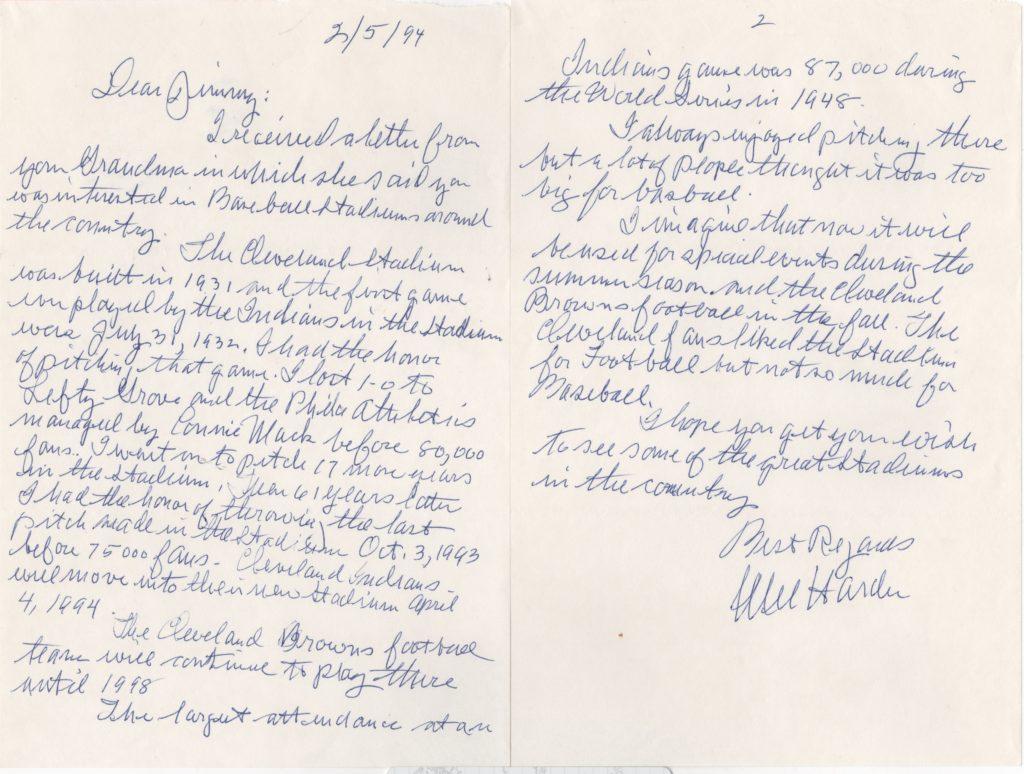 2/5/94
Dear Jimmy:
I received a letter from
your Grandma in which she said you
was interested in Baseball stadiums around
the country.
The Cleveland Stadium
was built in 1931 and the first game
ever played by the Indians in the stadium
was July 31, 1932. I had the honor
of pitching that game. I lost 1-0 to
Lefty Grove and the Phila Athletics
managed by Connie Mack before 80,000
fans. I went on to pitch 17 more years
in the Stadium. Then 61 years later
I had the honor of throwing the last
pitch made in the Stadium Oct. 3, 1993
before 75000 fans. Cleveland Indians
will move into their new stadium April
4, 1994.
The Cleveland Browns football
team will continue to play there
until 1998
The largest attendance at an
2
Indians game was 87,000 during
the World Series in 1948.
I always enjoyed pitching there
but a lot of people thought it was too
big for baseball.
I imagine that now it will
be used for special events during the
summer season and the Cleveland
Browns football in the fall. The
Cleveland fans liked the stadium
for Football but not so much for
Baseball.
I hope you get your wish
to see some of the great stadiums
in the country
Best Regards
Mel Harder